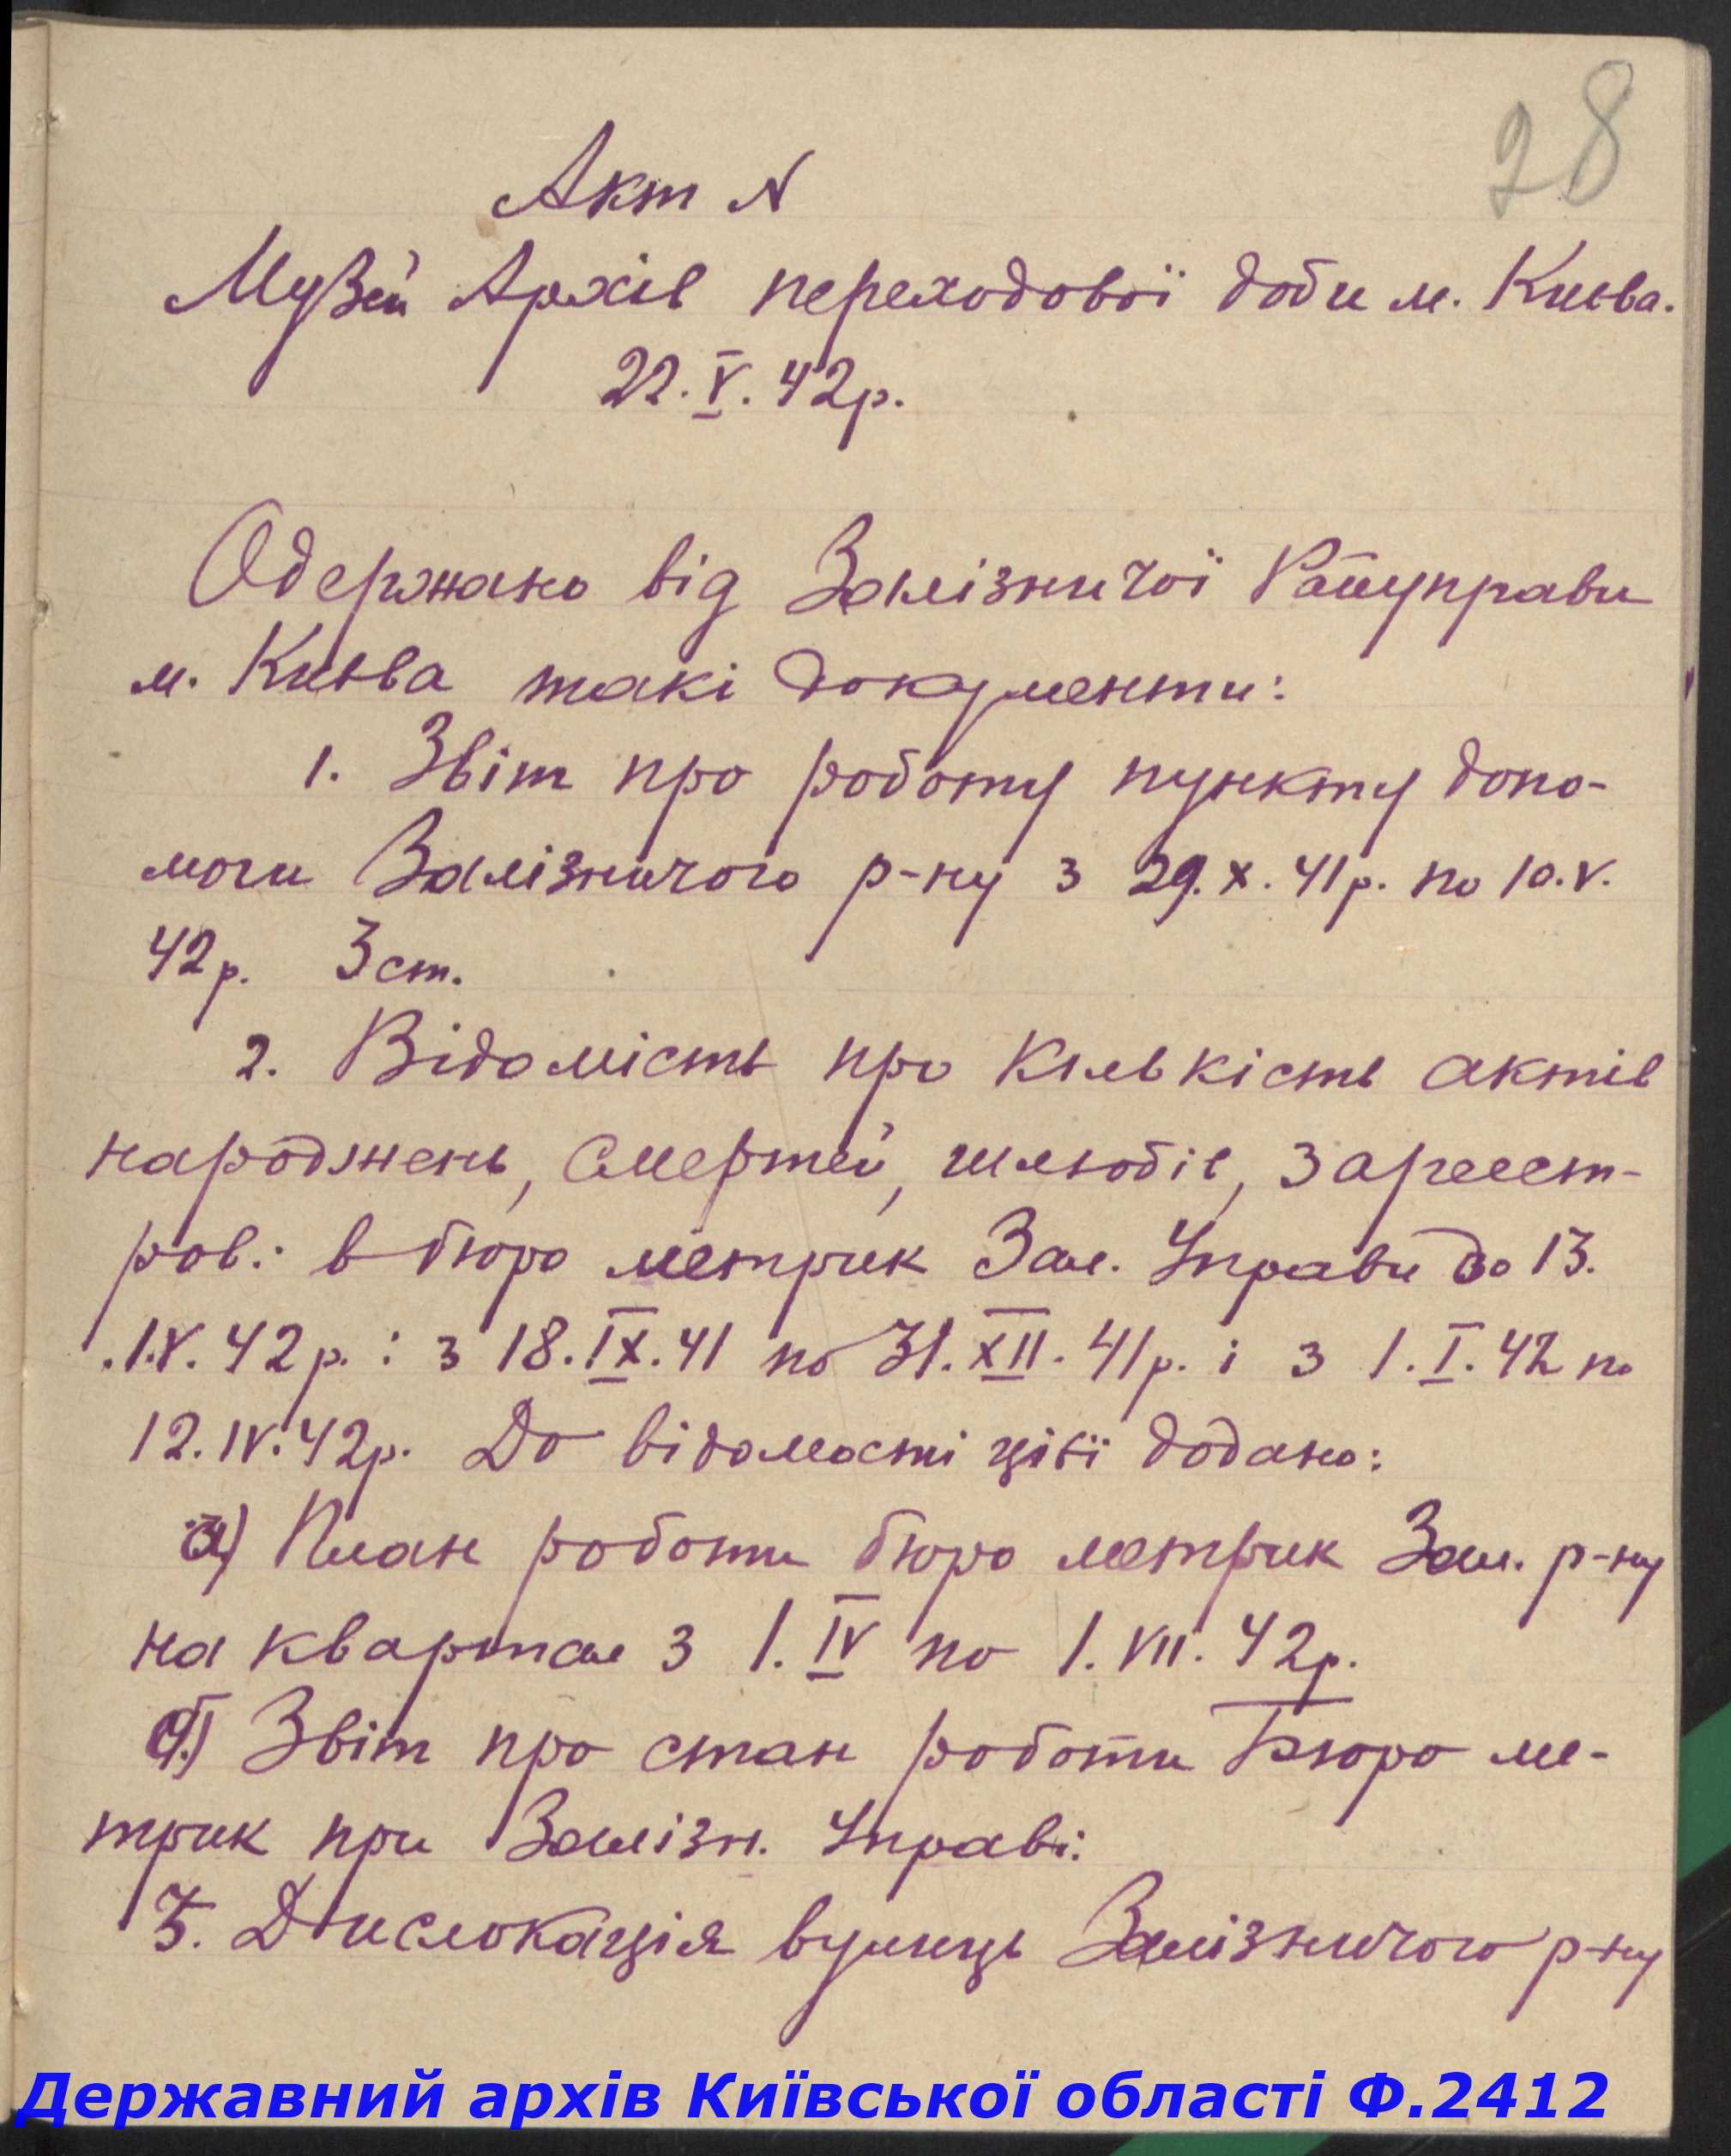 28
Акт N
Музей Архів переходової доби м. Києва.
22.V.42р.
Одержано від Залізничої Райуправи
м. Києва такі документи:
1. Звіт про роботу пункту допо-
моги Залізничого р-ну з 29.X.41р. по 10.V.
42р. 3 ст.
2. Відомість про кількість актів
народжень, смертей, шлюбів, зареєст-
ров.: в бюро метрик Зал. Управи до 13.
.IV.42р.: з 18.IX.41 по 31.XII.41р. і з 1.I.42 по
12.IV.42р. До відомості цієї додано:
а) План роботи бюро метрик Зал. р-ну
на квартал з 1.IV по 1.VII.42р.
б) Звіт про стан роботи Бюро ме-
трик при Залізн. Управі:
3. Дислокація вулиць Залізничого р-ну
Державний архів Київської області Ф.2412